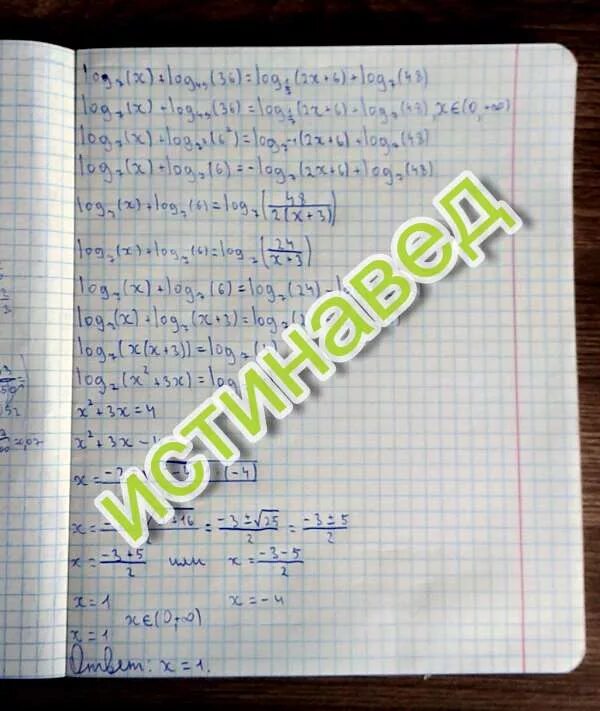 log₇(x)+log₄₉(36)=log_{1/7}(2x+6)+log₇(48)
log₇(x)+log₄₉(36)=log_{1/7}(2x+6)+log₇(48), x∈(0,+∞)
log₇(x)+log₇²(6²)=log₇₋₁(2x+6)+log₇(48)
log₇(x)+log₇(6)=-log₇(2x+6)+log₇(48)
log₇(x)+log₇(6)=log₇(48/2(x+3))
log₇(x)+log₇(6)=log₇(24/x+3)
log₇(x)+log₇(6)=log₇(24)-
log₇(x)+log₇(x+3)=log₇(
log₇(x(x+3))=log₇(
log₇(x²+3x)=log
x²+3x=4
x²+3x-
x= (-4)
x= +16 = -3±√25/2 = -3±5/2
x=-3+5/2 или x=-3-5/2
x=1 x=-4
x∈(0,+∞)
x=1
Ответ: x=1.
истинавед